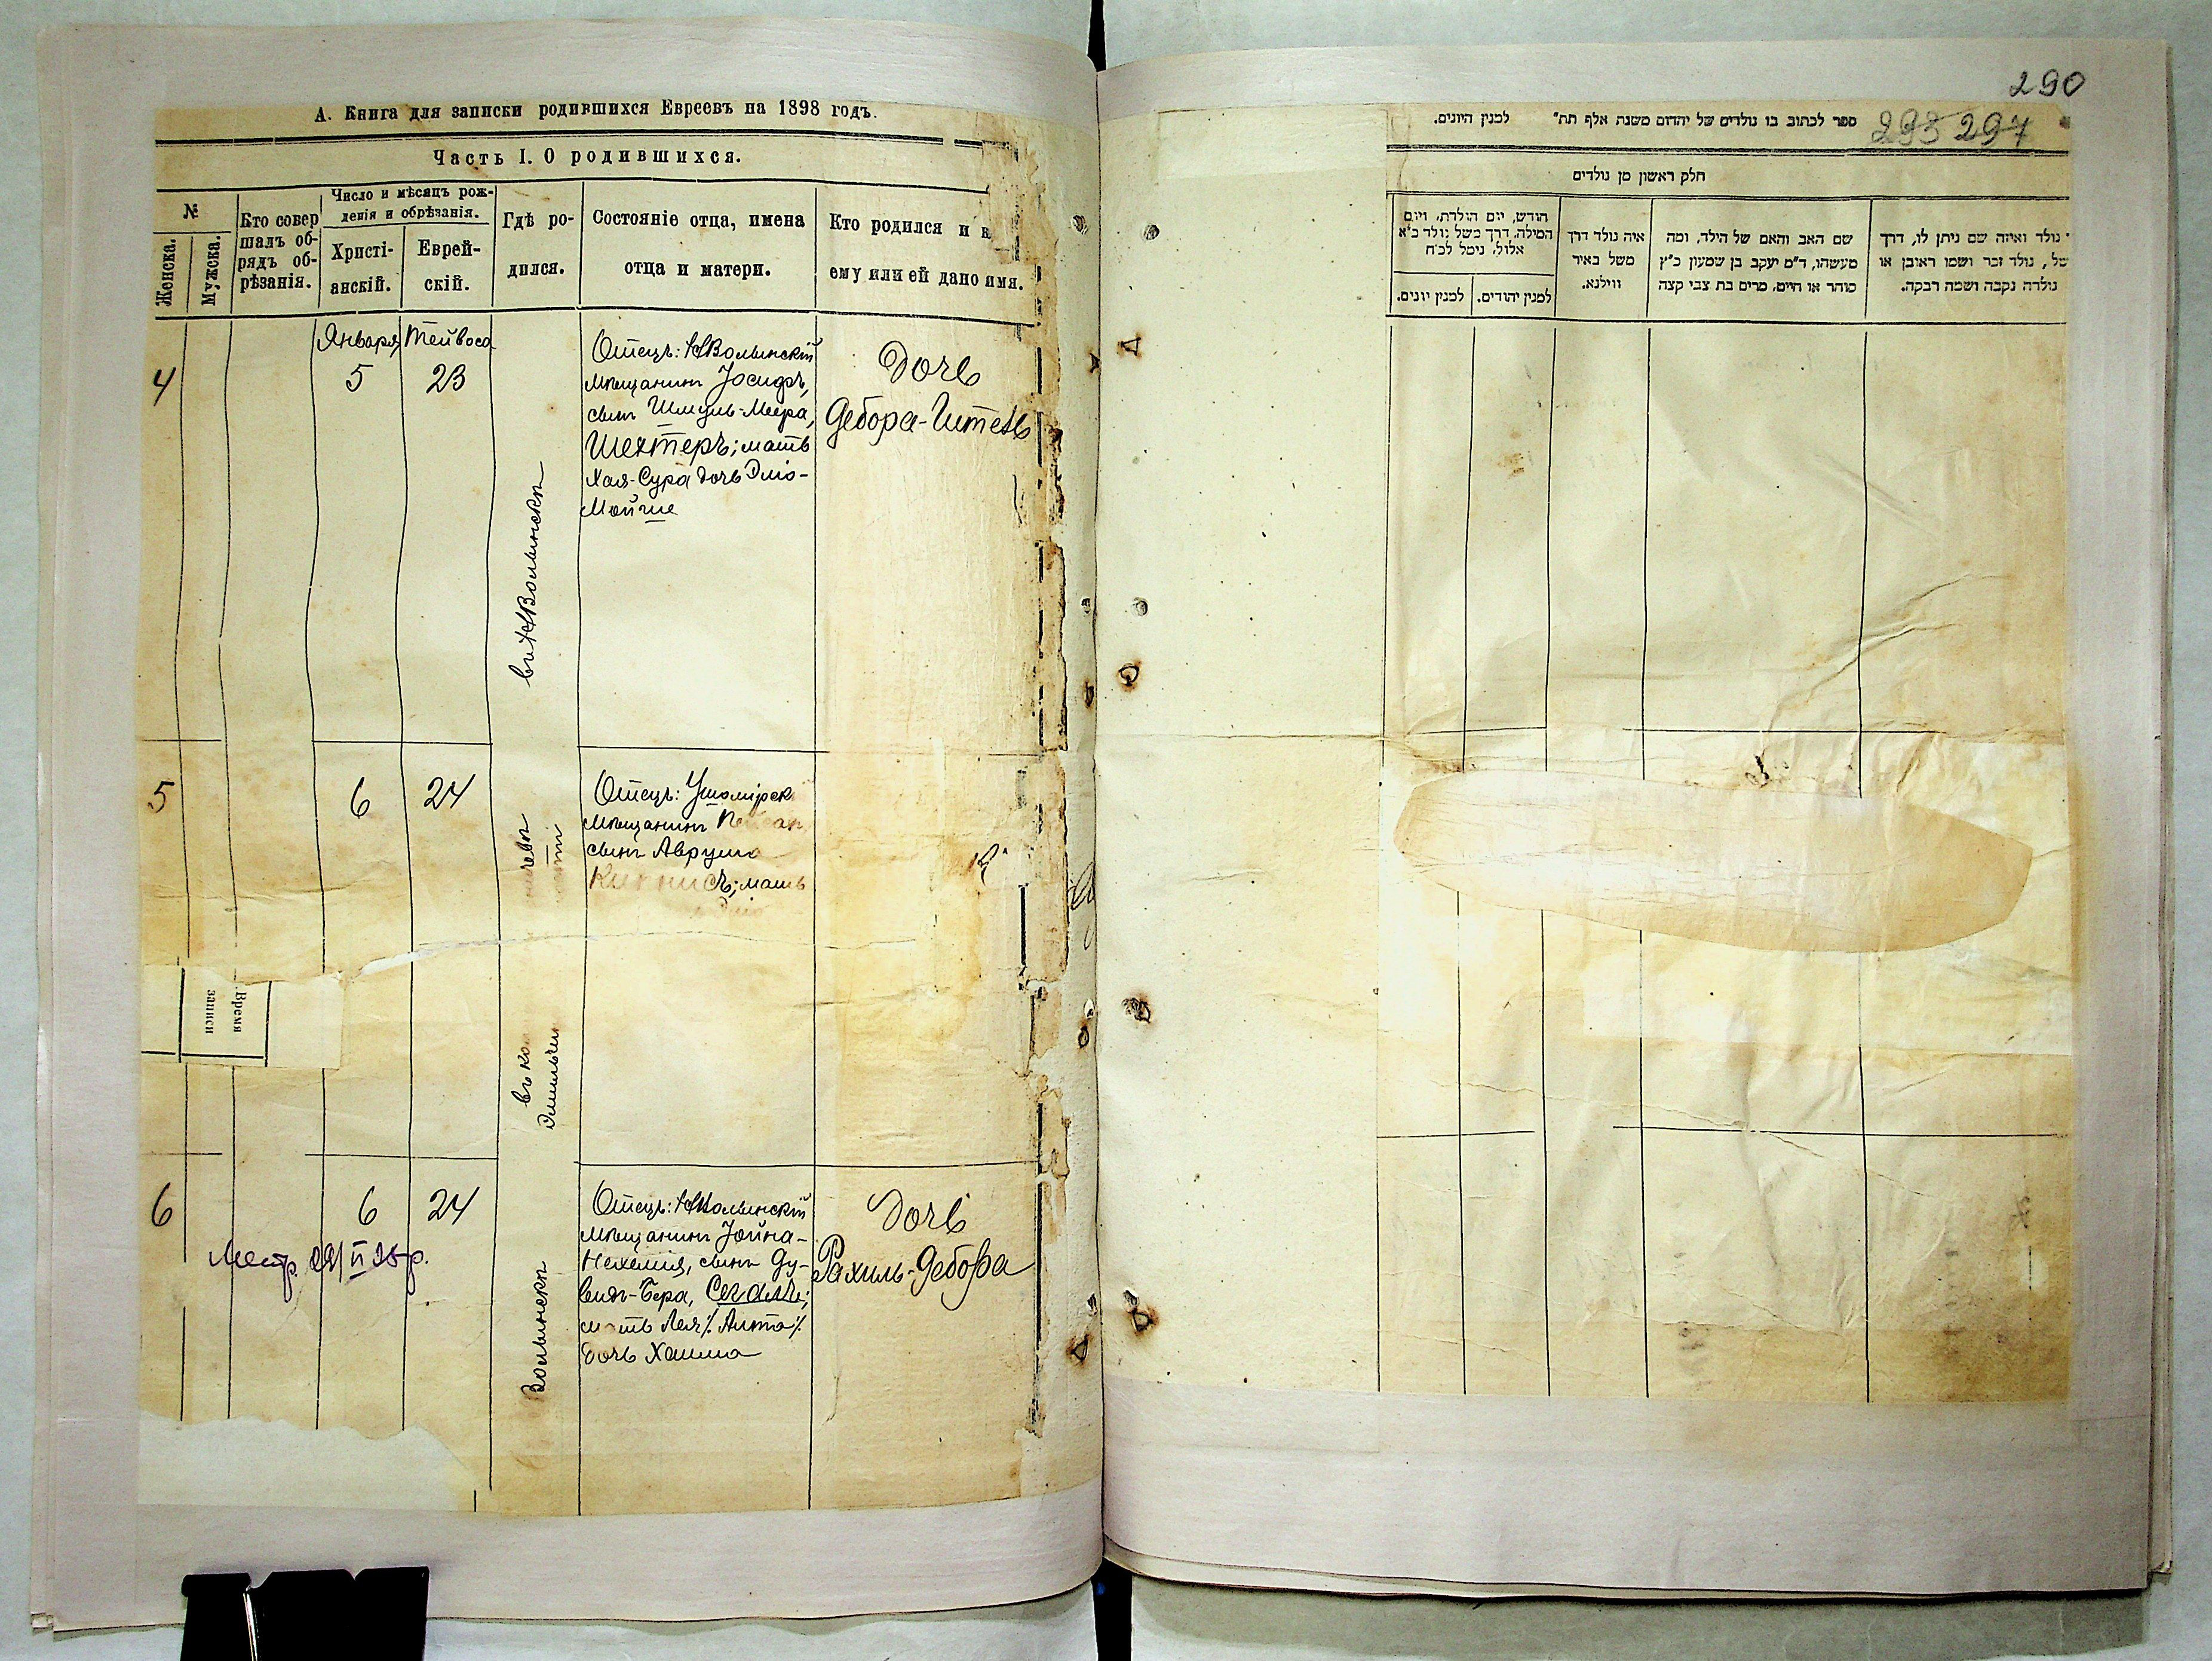 А. Книга для записки родившихся Евреевъ на 1898 годъ.
Часть I. О родившихся.
№
Женска.
Мужска.
Кто совер
шалъ об-
рядъ об-
рѣзанія.
Число и мѣсяцъ рож-
денія и обрѣзанія.
Христі-
анскій.
Еврей-
скій.
Гдѣ ро-
дился.
Состояніе отца, имена
отца и матери.
Кто родился и к
ему или ей дано имя.
4
Января
5
Тейвоса
23
въ НВолынскѣ
Отецъ: НВолынскій
мѣщанинъ Іосифъ,
сынъ Шмуль-Меера,
Шехтеръ; мать
Хая-Сура дочь Эліо-
Мойше
Дочь
Дебора-Гитель
5
6
24
въ ко
Эмильчи
Отецъ: Ушомірск
мѣщанинъ
сынъ Аврума
мать
Время
записи
6
6
24
Метр. 29/II 35 р.
Волынскѣ
Отецъ: НВолынскій
мѣщанинъ Іойна-
Нехемія, сынъ Ду-
видъ-Бера, Сегалъ;
мать Лея ∕. Алта ∕.
дочь Хаима
Дочь
Рахиль-Дебора
290
293 297
ספר לכתוב בו נולדים של יהדום משנת אלף תת" למנין היונים.
חלק ראשון מן נולדים
חודש, יום הולדת, ויום
המילה, דרך משל נולד כ"א
אלול, נימל לכ"ח
למנין יונים.
למנין יהודים.
איה נולד דרך
משל באיר
ווילנא.
שם האב והאם של הילד, ומה
מעשהו, ד"מ יעקב בן שמעון כ"ץ
סוחר או חיים, מרים בת צבי קצה
נולד ואיזה שם ניתן לו, דרך
של, נולד זכר ושמו ראובן או
נולדה נקבה ושמה רבקה.